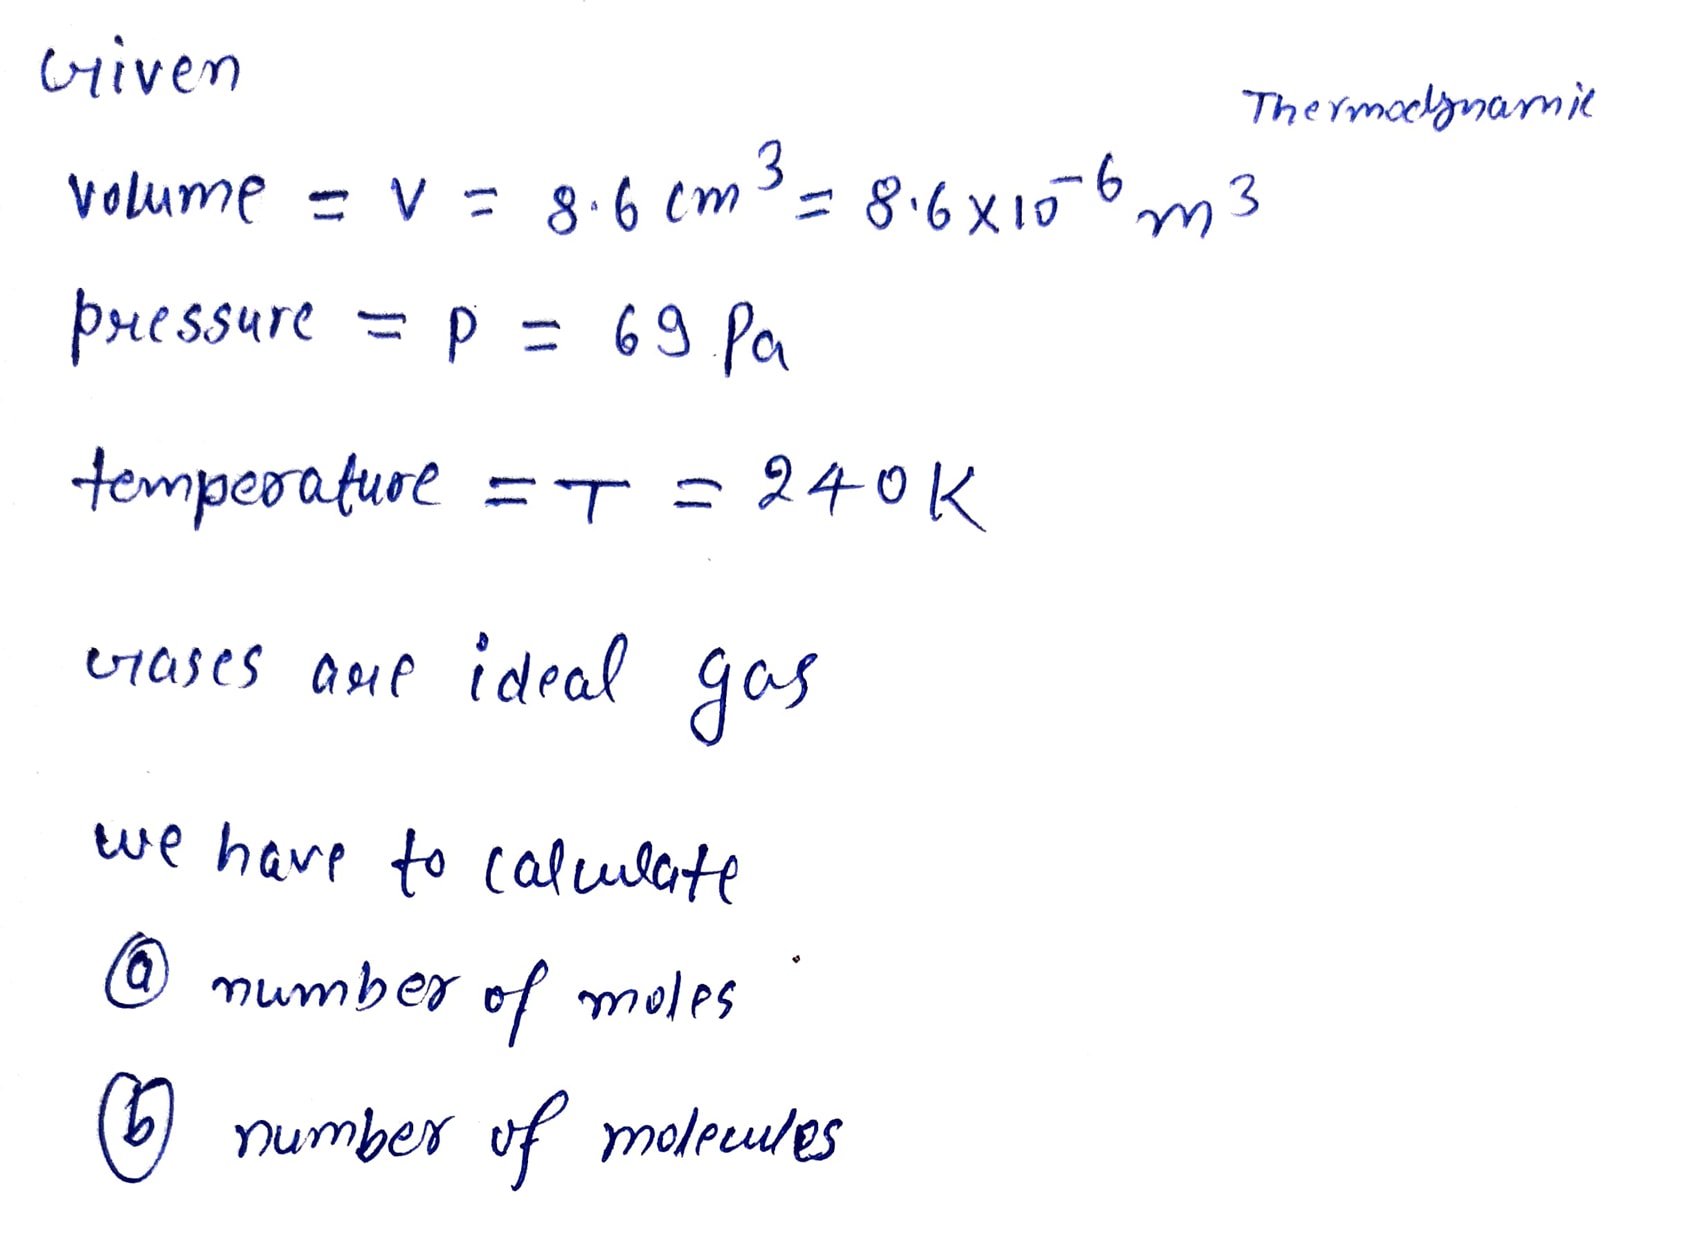 Given
Thermodynamic
volume = V = 8.6 cm³ = 8.6 × 10⁻⁶ m³
pressure = P = 69 Pa
temperature = T = 240K
Gases are ideal gas
we have to calculate
ⓐ number of moles
ⓑ number of molecules